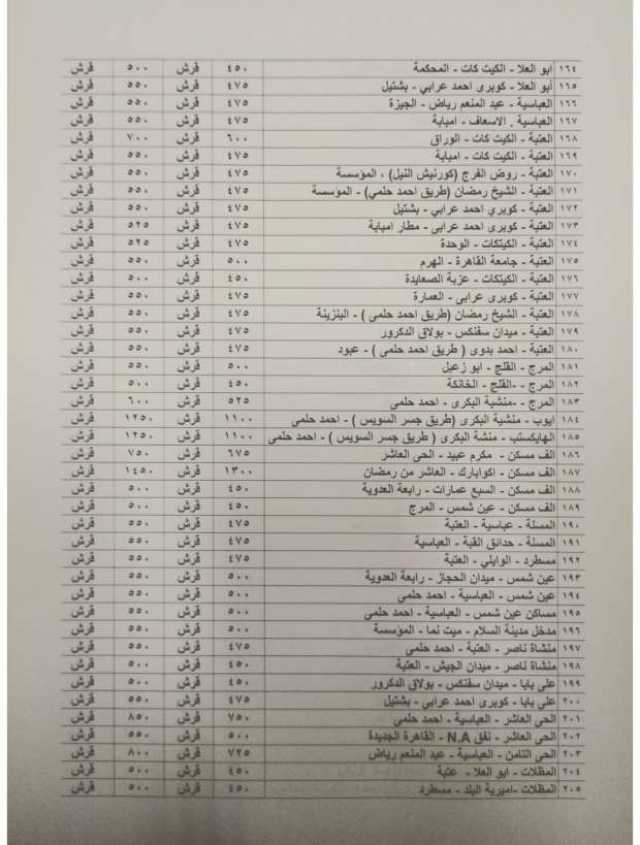 ١٦٤ ابو العلا - الكيت كات - المحكمة ٤٥٠ قرش ٥٠٠ قرش
١٦٥ أبو العلا - كوبرى احمد عرابي - بشتيل ٤٧٥ قرش ٥٥٠ قرش
١٦٦ العباسية - عبد المنعم رياض - الجيزة ٤٧٥ قرش ٥٥٠ قرش
١٦٧ العباسية . الاسعاف - امبابة ٤٧٥ قرش ٥٥٠ قرش
١٦٨ العتبة - الكيت كات - الوراق ٦٠٠ قرش ٧٠٠ قرش
١٦٩ العتبة - الكيت كات - امبابة ٤٧٥ قرش ٥٥٠ قرش
١٧٠ العتبة - روض الفرج (كورنيش النيل) ، المؤسسة ٤٧٥ قرش ٥٥٠ قرش
١٧١ العتبة - الشيخ رمضان (طريق احمد حلمي) - المؤسسة ٤٧٥ قرش ٥٥٠ قرش
١٧٢ العتبة - كوبري احمد عرابي - بشتيل ٤٧٥ قرش ٥٥٠ قرش
١٧٣ العتبة - كوبرى احمد عرابى - مطار امبابة ٤٧٥ قرش ٥٢٥ قرش
١٧٤ العتبة - الكيتكات - الوحدة ٤٧٥ قرش ٥٢٥ قرش
١٧٥ العتبة - جامعة القاهرة - الهرم ٥٠٠ قرش ٥٥٠ قرش
١٧٦ العتبة - الكيتكات - عزبة الصعايدة ٤٥٠ قرش ٥٠٠ قرش
١٧٧ العتبة - كوبرى عرابى - العمارة ٤٧٥ قرش ٥٥٠ قرش
١٧٨ العتبة - الشيخ رمضان (طريق احمد حلمى ) - البنزينة ٤٧٥ قرش ٥٥٠ قرش
١٧٩ العتبة - ميدان سفنكس - بولاق الدكرور ٤٧٥ قرش ٥٥٠ قرش
١٨٠ العتبة - احمد بدوى ( طريق احمد حلمى ) - عبود ٤٧٥ قرش ٥٥٠ قرش
١٨١ المرج - القلج - ابو زعبل ٥٠٠ قرش ٥٥٠ قرش
١٨٢ المرج - -القلج - الخانكة ٤٥٠ قرش ٥٠٠ قرش
١٨٣ المرج - -منشية البكرى - احمد حلمى ٥٢٥ قرش ٦٠٠ قرش
١٨٤ ايوب - منشية البكرى (طريق جسر السويس ) - احمد حلمى ١١٠٠ قرش ١٢٥٠ قرش
١٨٥ الهايكستب - منشة البكرى ( طريق جسر السويس ) - احمد حلمى ١١٠٠ قرش ١٢٥٠ قرش
١٨٦ الف مسكن - مكرم عبيد - الحى العاشر ٦٧٥ قرش ٧٥٠ قرش
١٨٧ الف مسكن - اكوابارك - العاشر من رمضان ١٣٠٠ قرش ١٤٥٠ قرش
١٨٨ الف مسكن - السبع عمارات - رابعة العدوية ٤٥٠ قرش ٥٠٠ قرش
١٨٩ الف مسكن - عين شمس - المرج ٤٥٠ قرش ٥٠٠ قرش
١٩٠ المسلة - عباسية - العتبة ٤٧٥ قرش ٥٥٠ قرش
١٩١ المسلة - حدائق القبة - العباسية ٤٧٥ قرش ٥٥٠ قرش
١٩٢ مسطرد - الوايلي - العتبة ٤٧٥ قرش ٥٥٠ قرش
١٩٣ عين شمس - ميدان الحجاز - رابعة العدوية ٥٠٠ قرش ٥٥٠ قرش
١٩٤ عين شمس - العباسية - احمد حلمى ٥٠٠ قرش ٥٥٠ قرش
١٩٥ مساكن عين شمس - العباسية - احمد حلمى ٥٠٠ قرش ٥٥٠ قرش
١٩٦ مدخل مدينة السلام - ميت نما - المؤسسة ٥٠٠ قرش ٥٥٠ قرش
١٩٧ منشاة ناصر - العتبة - احمد حلمى ٤٧٥ قرش ٥٥٠ قرش
١٩٨ منشاة ناصر - ميدان الجيش - العتبة ٤٥٠ قرش ٥٠٠ قرش
١٩٩ على بابا - ميدان سفنكس - بولاق الدكرور ٤٥٠ قرش ٥٠٠ قرش
٢٠٠ على بابا - كوبرى احمد عرابي - بشتيل ٤٧٥ قرش ٥٥٠ قرش
٢٠١ الحى العاشر - العباسية - احمد حلمى ٧٥٠ قرش ٨٥٠ قرش
٢٠٢ الحى العاشر - نفق N.A - القاهرة الجديدة ٥٠٠ قرش ٥٥٠ قرش
٢٠٣ الحى الثامن - العباسية - عبد المنعم رياض ٧٢٥ قرش ٨٠٠ قرش
٢٠٤ المظلات - ابو العلا - عتبة ٤٥٠ قرش ٥٠٠ قرش
٢٠٥ المظلات -اميرية البلد - مسطرد ٤٥٠ قرش ٥٠٠ قرش